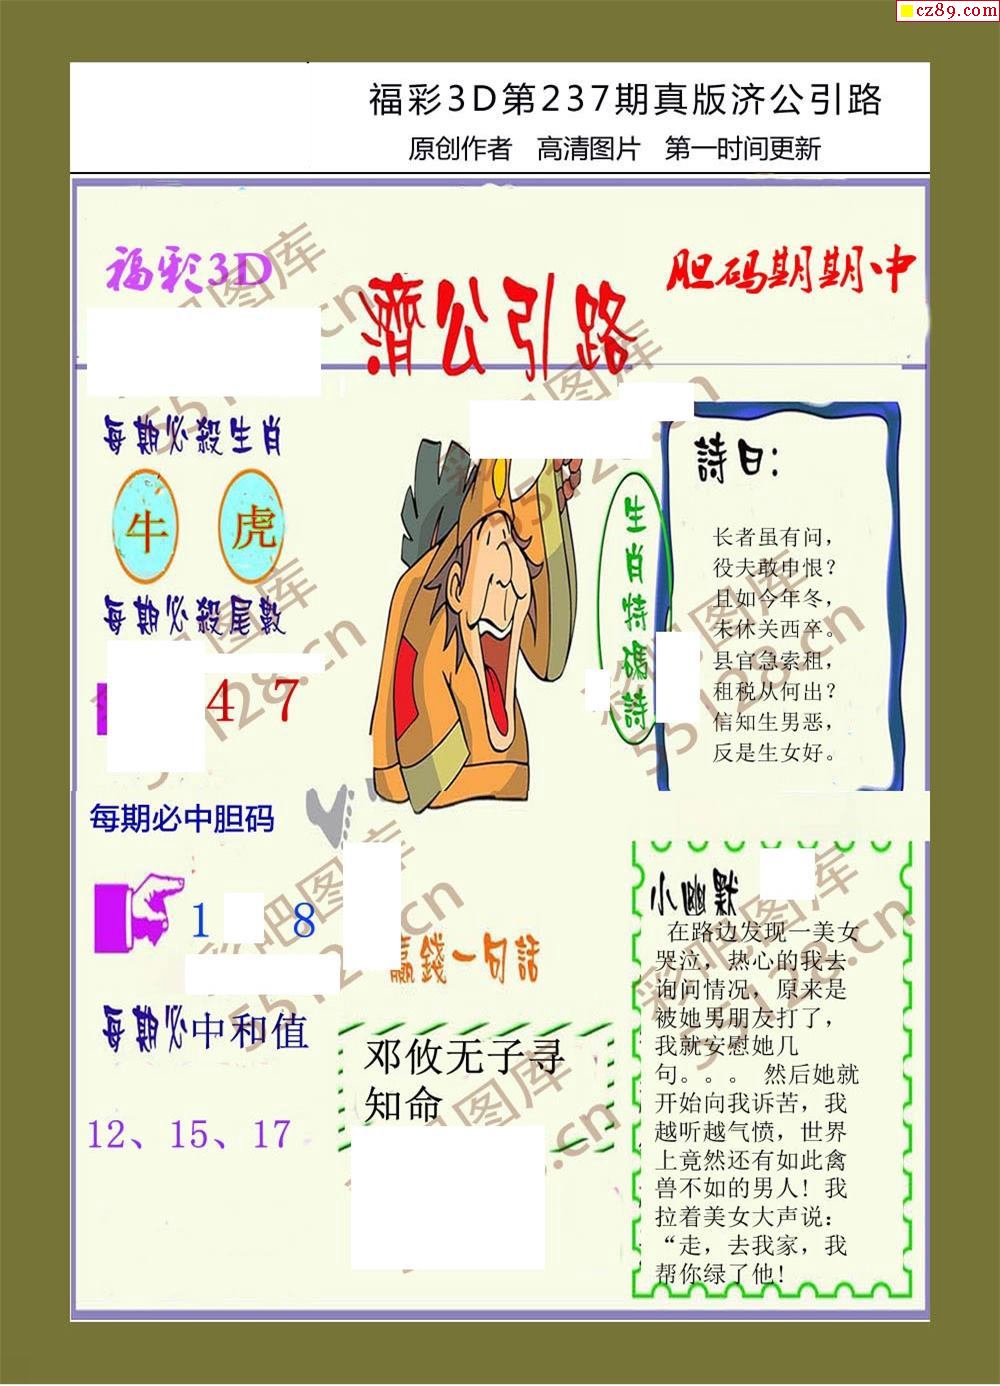 cz89.com
福彩3D第237期真版济公引路
原创作者 高清图片 第一时间更新
福彩3D
濟公引路
胆码期期中
每期必殺生肖
牛 虎
每期必殺尾數
4 7
每期必中胆码
1 8
每期必中和值
12、15、17
生肖特碼詩
詩曰:
长者虽有问，
役夫敢申恨？
且如今年冬，
未休关西卒。
县官急索租，
租税从何出？
信知生男恶，
反是生女好。
贏錢一句話
邓攸无子寻
知命
小幽默
在路边发现一美女
哭泣，热心的我去
询问情况，原来是
被她男朋友打了，
我就安慰她几
句。。。 然后她就
开始向我诉苦，我
越听越气愤，世界
上竟然还有如此禽
兽不如的男人！我
拉着美女大声说：
“走，去我家，我
帮你绿了他！
彩吧图库
55128.cn